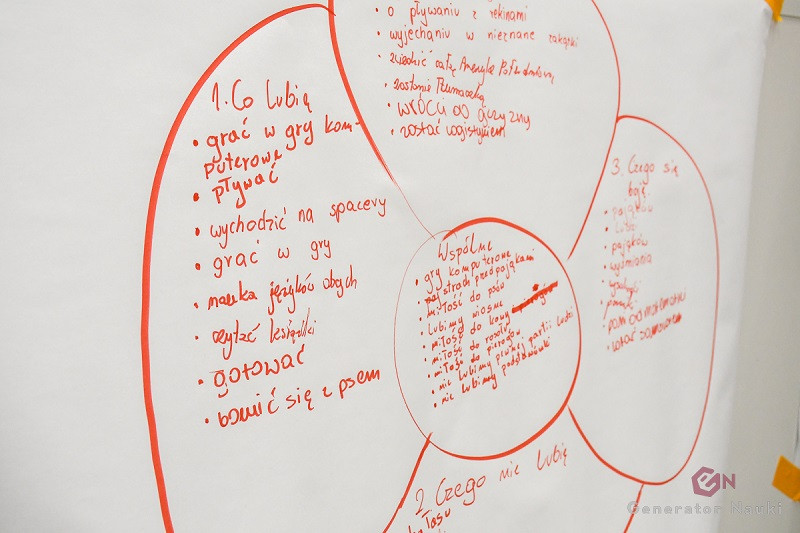 • o pływaniu z rekinami
• wyjechaniu w nieznane zakątki
zwiedzić całą Amerykę Południową
• zostanie tłumaczką
• WRÓCIĆ DO OJCZYZNY
• zostać logistykiem
1. Co lubią
• grać w gry kom-
puterowe
• pływać
• wychodzić na spacery
• grać w gry
• nauka języków obcych
• czytać książki
• gotować
• bawić się z psem
Wspólne
• gry komputerowe
• strach przed pająkami
• miłość do psów
• lubimy wiosnę
• miłość do kawy
• miłość do rosołu
• miłość do pierogów
• nie lubimy pewnej partii ludzi
• nie lubimy podstawówki
3. Czego się
boją
• pająków
• ludzi
• pająków
• pani od matematyki
2. Czego nie lubią
hałasu
GN
Generator Nauki